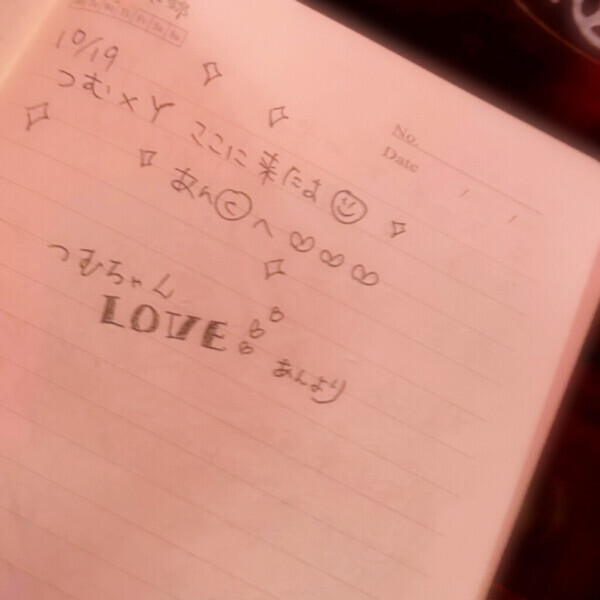 10/19
つむ×Y ここに来たよ
No.
Date
あんⓒへ
つむちゃん
LOVE
あんより